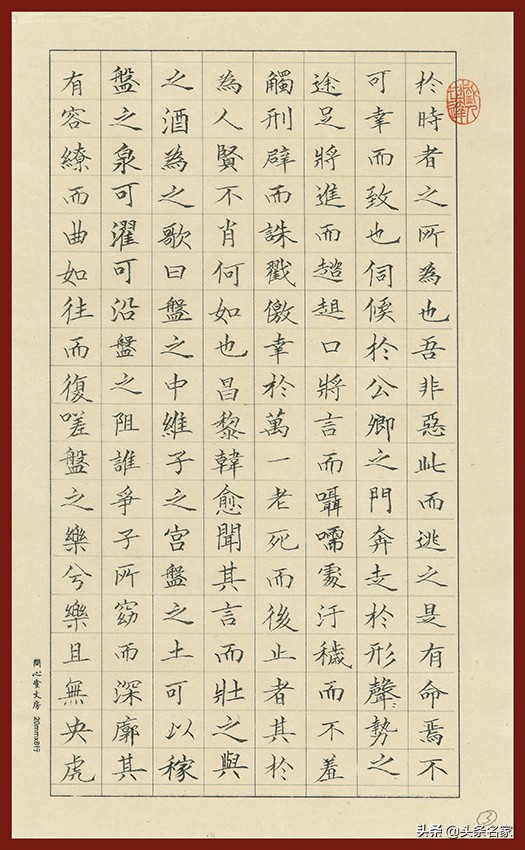 於時者之所為也吾非惡此而逃之是有命焉不
可幸而致也伺候於公卿之門奔走於形聲勢之
途足將進而趑趄口將言而囁嚅處汙穢而不羞
觸刑辟而誅戮儌幸於萬一老死而後止者其於
為人賢不肖何如也昌黎韓愈聞其言而壯之與
之酒為之歌曰盤之中維子之宮盤之土可以稼
盤之泉可濯可沿盤之阻誰爭子所窈而深廓其
有容繚而曲如往而復嗟盤之樂兮樂且無央虎
問心堂文房 20mmx8行
3
头条 @头条名家